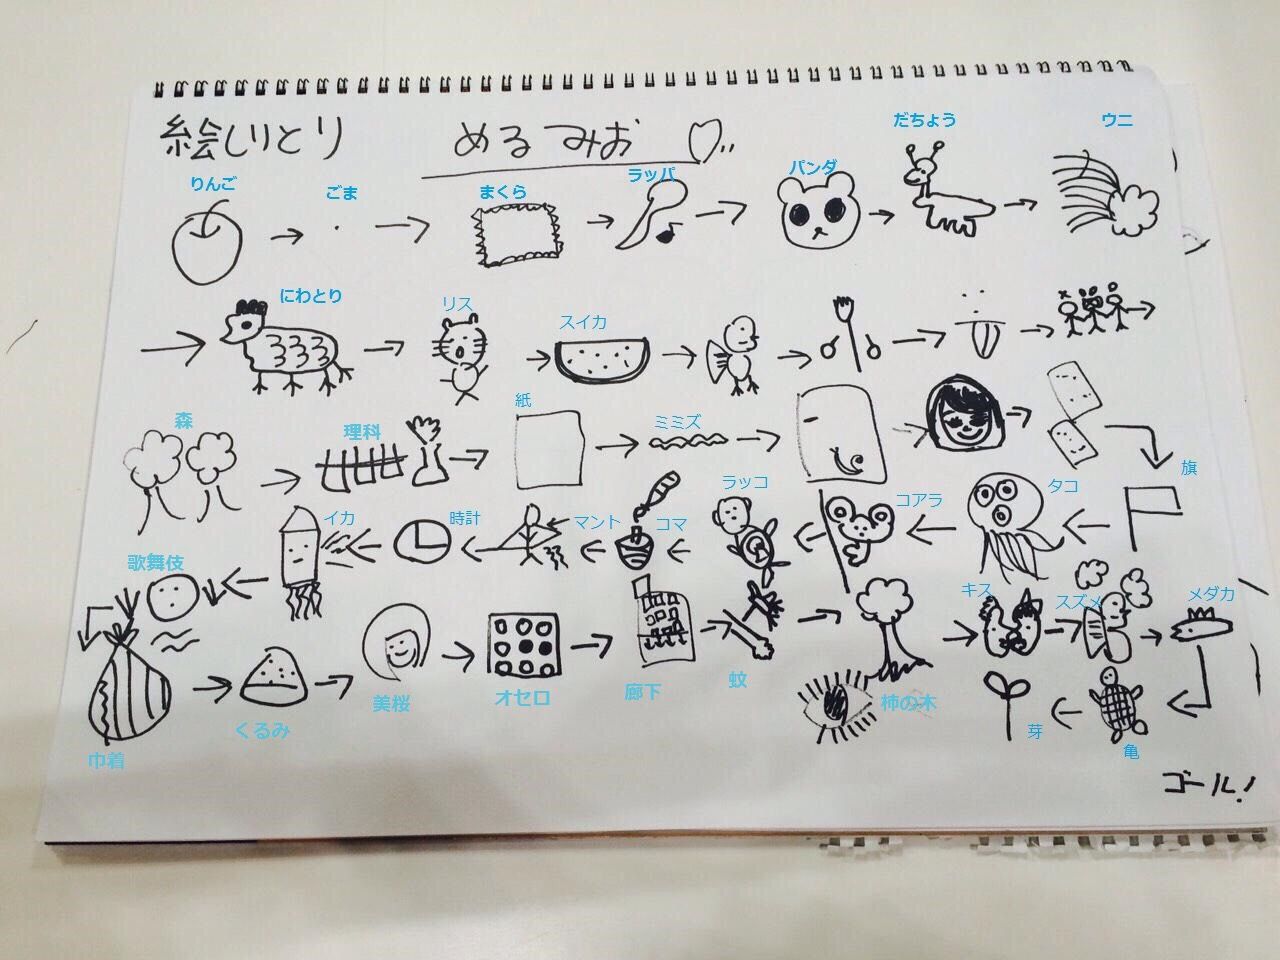 絵しりとり めるみお
りんご ごま まくら ラッパ パンダ だちょう ウニ
にわとり リス スイカ
森 理科 紙 ミミズ
旗
イカ 時計 マント コマ ラッコ コアラ タコ
歌舞伎
キス スズメ メダカ
巾着 くるみ 美桜 オセロ 廊下 蚊 柿の木 芽 亀
ゴール!